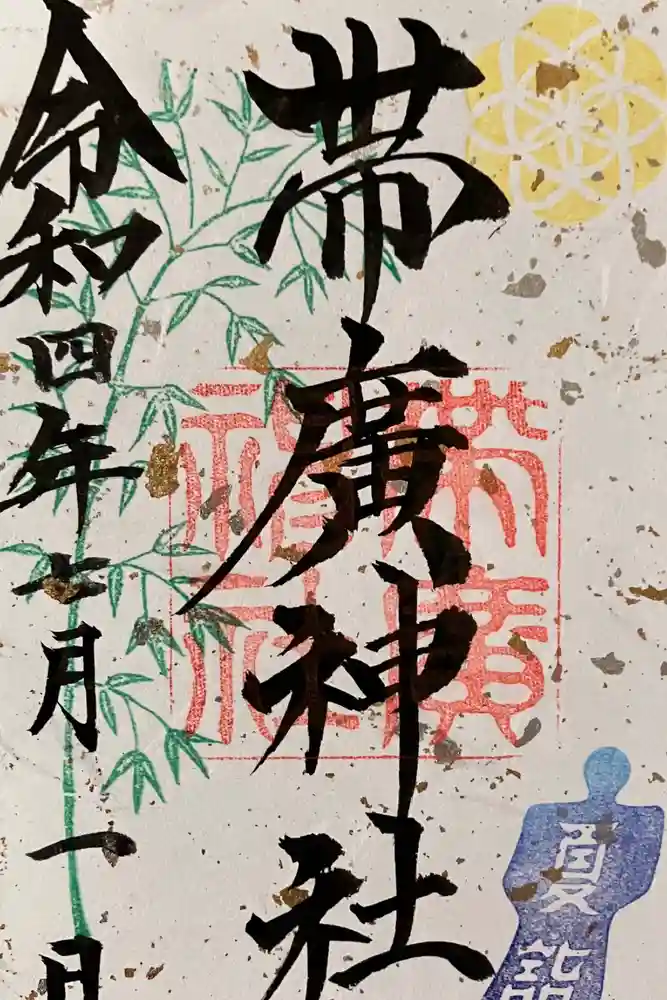 帶廣神社
夏詣
帯廣神社
令和四年七月一日